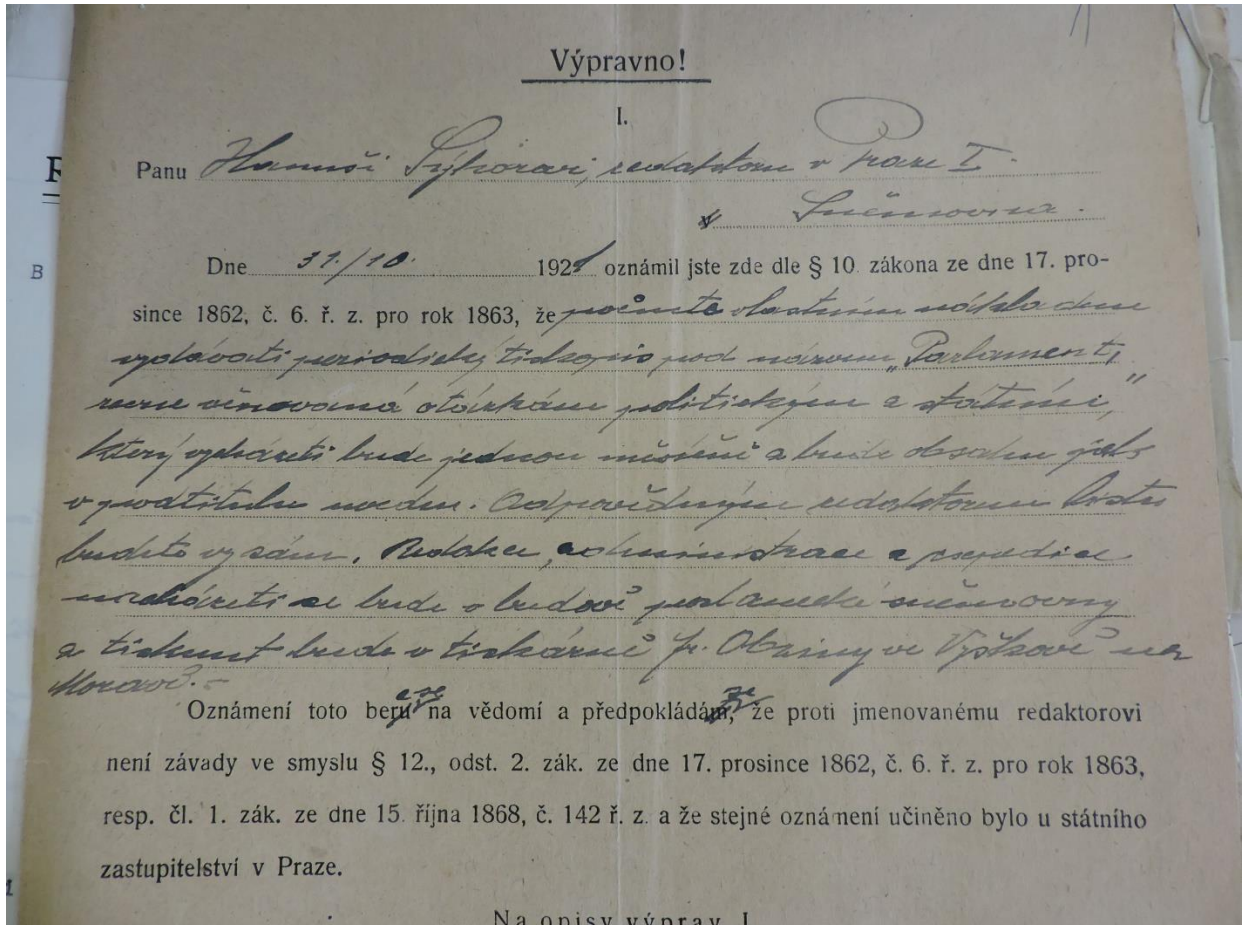 Výpravno!
I.
Panu Hanuši Sýkorovi, redaktoru v Praze I.
Sněmovna.
B
Dne 31./10. 1921 oznámil jste zde dle § 10. zákona ze dne 17. pro-
since 1862, č. 6. ř. z. pro rok 1863, že počnete vlastním nákladem
vydávati periodický tiskopis pod názvem „Parlament,
revue věnovaná otázkám politickým a státním,“
který vycházeti bude jednou měsíčně a bude obsahu jak
v podtitulu uveden. Odpovědným redaktorem listu
budete vy sám. Redakce, administrace a expedice
nacházeti se bude v budově poslanecké sněmovny
a tisknut bude v tiskárně fr. Obziny ve Vyškově na
Moravě.-
Oznámení toto bere se na vědomí a předpokládá se, že proti jmenovanému redaktorovi
není závady ve smyslu § 12., odst. 2. zák. ze dne 17. prosince 1862, č. 6. ř. z. pro rok 1863,
resp. čl. 1. zák. ze dne 15. října 1868, č. 142 ř. z. a že stejné oznámení učiněno bylo u státního
zastupitelství v Praze.
Na opisy výprav. I.